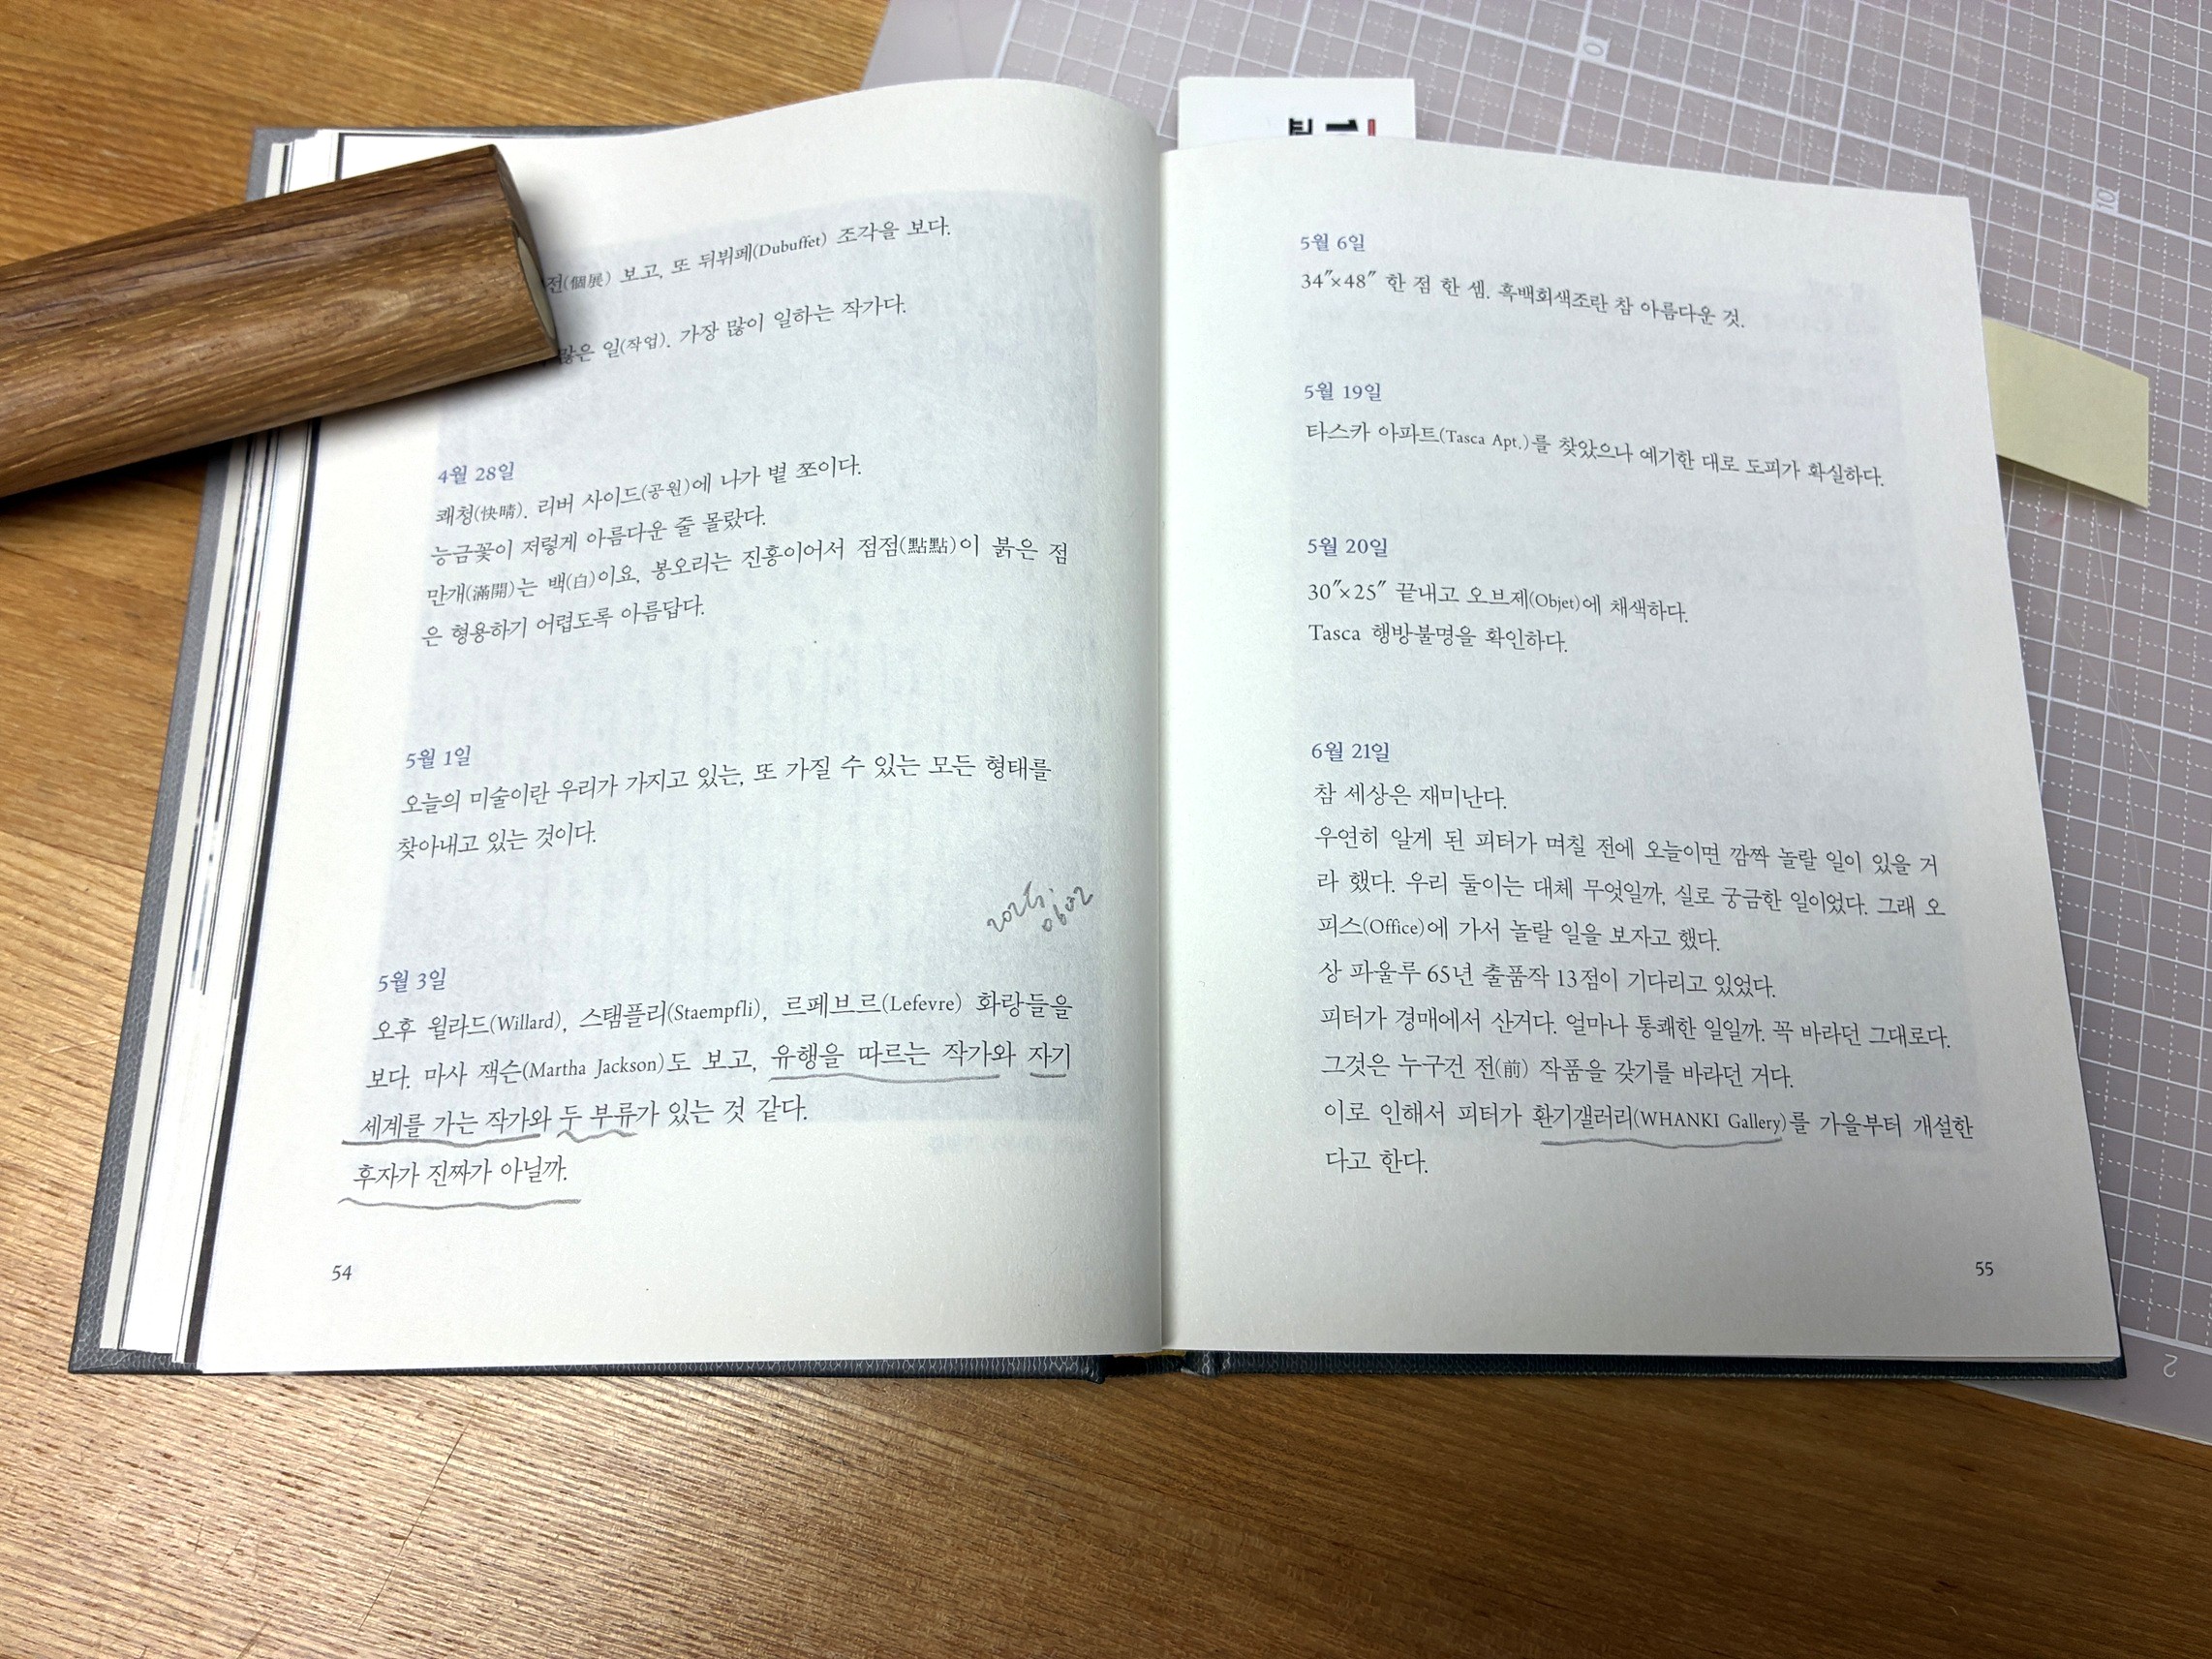 전(個展) 보고, 또 뒤뷔페(Dubuffet) 조각을 보다.
많은 일(작업). 가장 많이 일하는 작가다.
4월 28일
쾌청(快晴). 리버 사이드(공원)에 나가 볕 쪼이다.
능금꽃이 저렇게 아름다운 줄 몰랐다.
만개(滿開)는 백(白)이요, 봉오리는 진홍이어서 점점(點點)이 붉은 점
은 형용하기 어렵도록 아름답다.
5월 1일
오늘의 미술이란 우리가 가지고 있는, 또 가질 수 있는 모든 형태를
찾아내고 있는 것이다.
5월 3일
오후 윌라드(Willard), 스탬플리(Staempfli), 르페브르(Lefevre) 화랑들을
보다. 마사 잭슨(Martha Jackson)도 보고, 유행을 따르는 작가와 자기
세계를 가는 작가와 두 부류가 있는 것 같다.
후자가 진짜가 아닐까.
54
5월 6일
34″×48″ 한 점 한 셈. 흑백회색조란 참 아름다운 것.
5월 19일
타스카 아파트(Tasca Apt.)를 찾았으나 예기한 대로 도피가 확실하다.
5월 20일
30″×25″ 끝내고 오브제(Objet)에 채색하다.
Tasca 행방불명을 확인하다.
6월 21일
참 세상은 재미난다.
우연히 알게 된 피터가 며칠 전에 오늘이면 깜짝 놀랄 일이 있을 거
라 했다. 우리 둘이는 대체 무엇일까, 실로 궁금한 일이었다. 그래 오
피스(Office)에 가서 놀랄 일을 보자고 했다.
상 파울루 65년 출품작 13점이 기다리고 있었다.
피터가 경매에서 산거다. 얼마나 통쾌한 일일까. 꼭 바라던 그대로다.
그것은 누구건 전(前) 작품을 갖기를 바라던 거다.
이로 인해서 피터가 환기갤러리(WHANKI Gallery)를 가을부터 개설한
다고 한다.
55